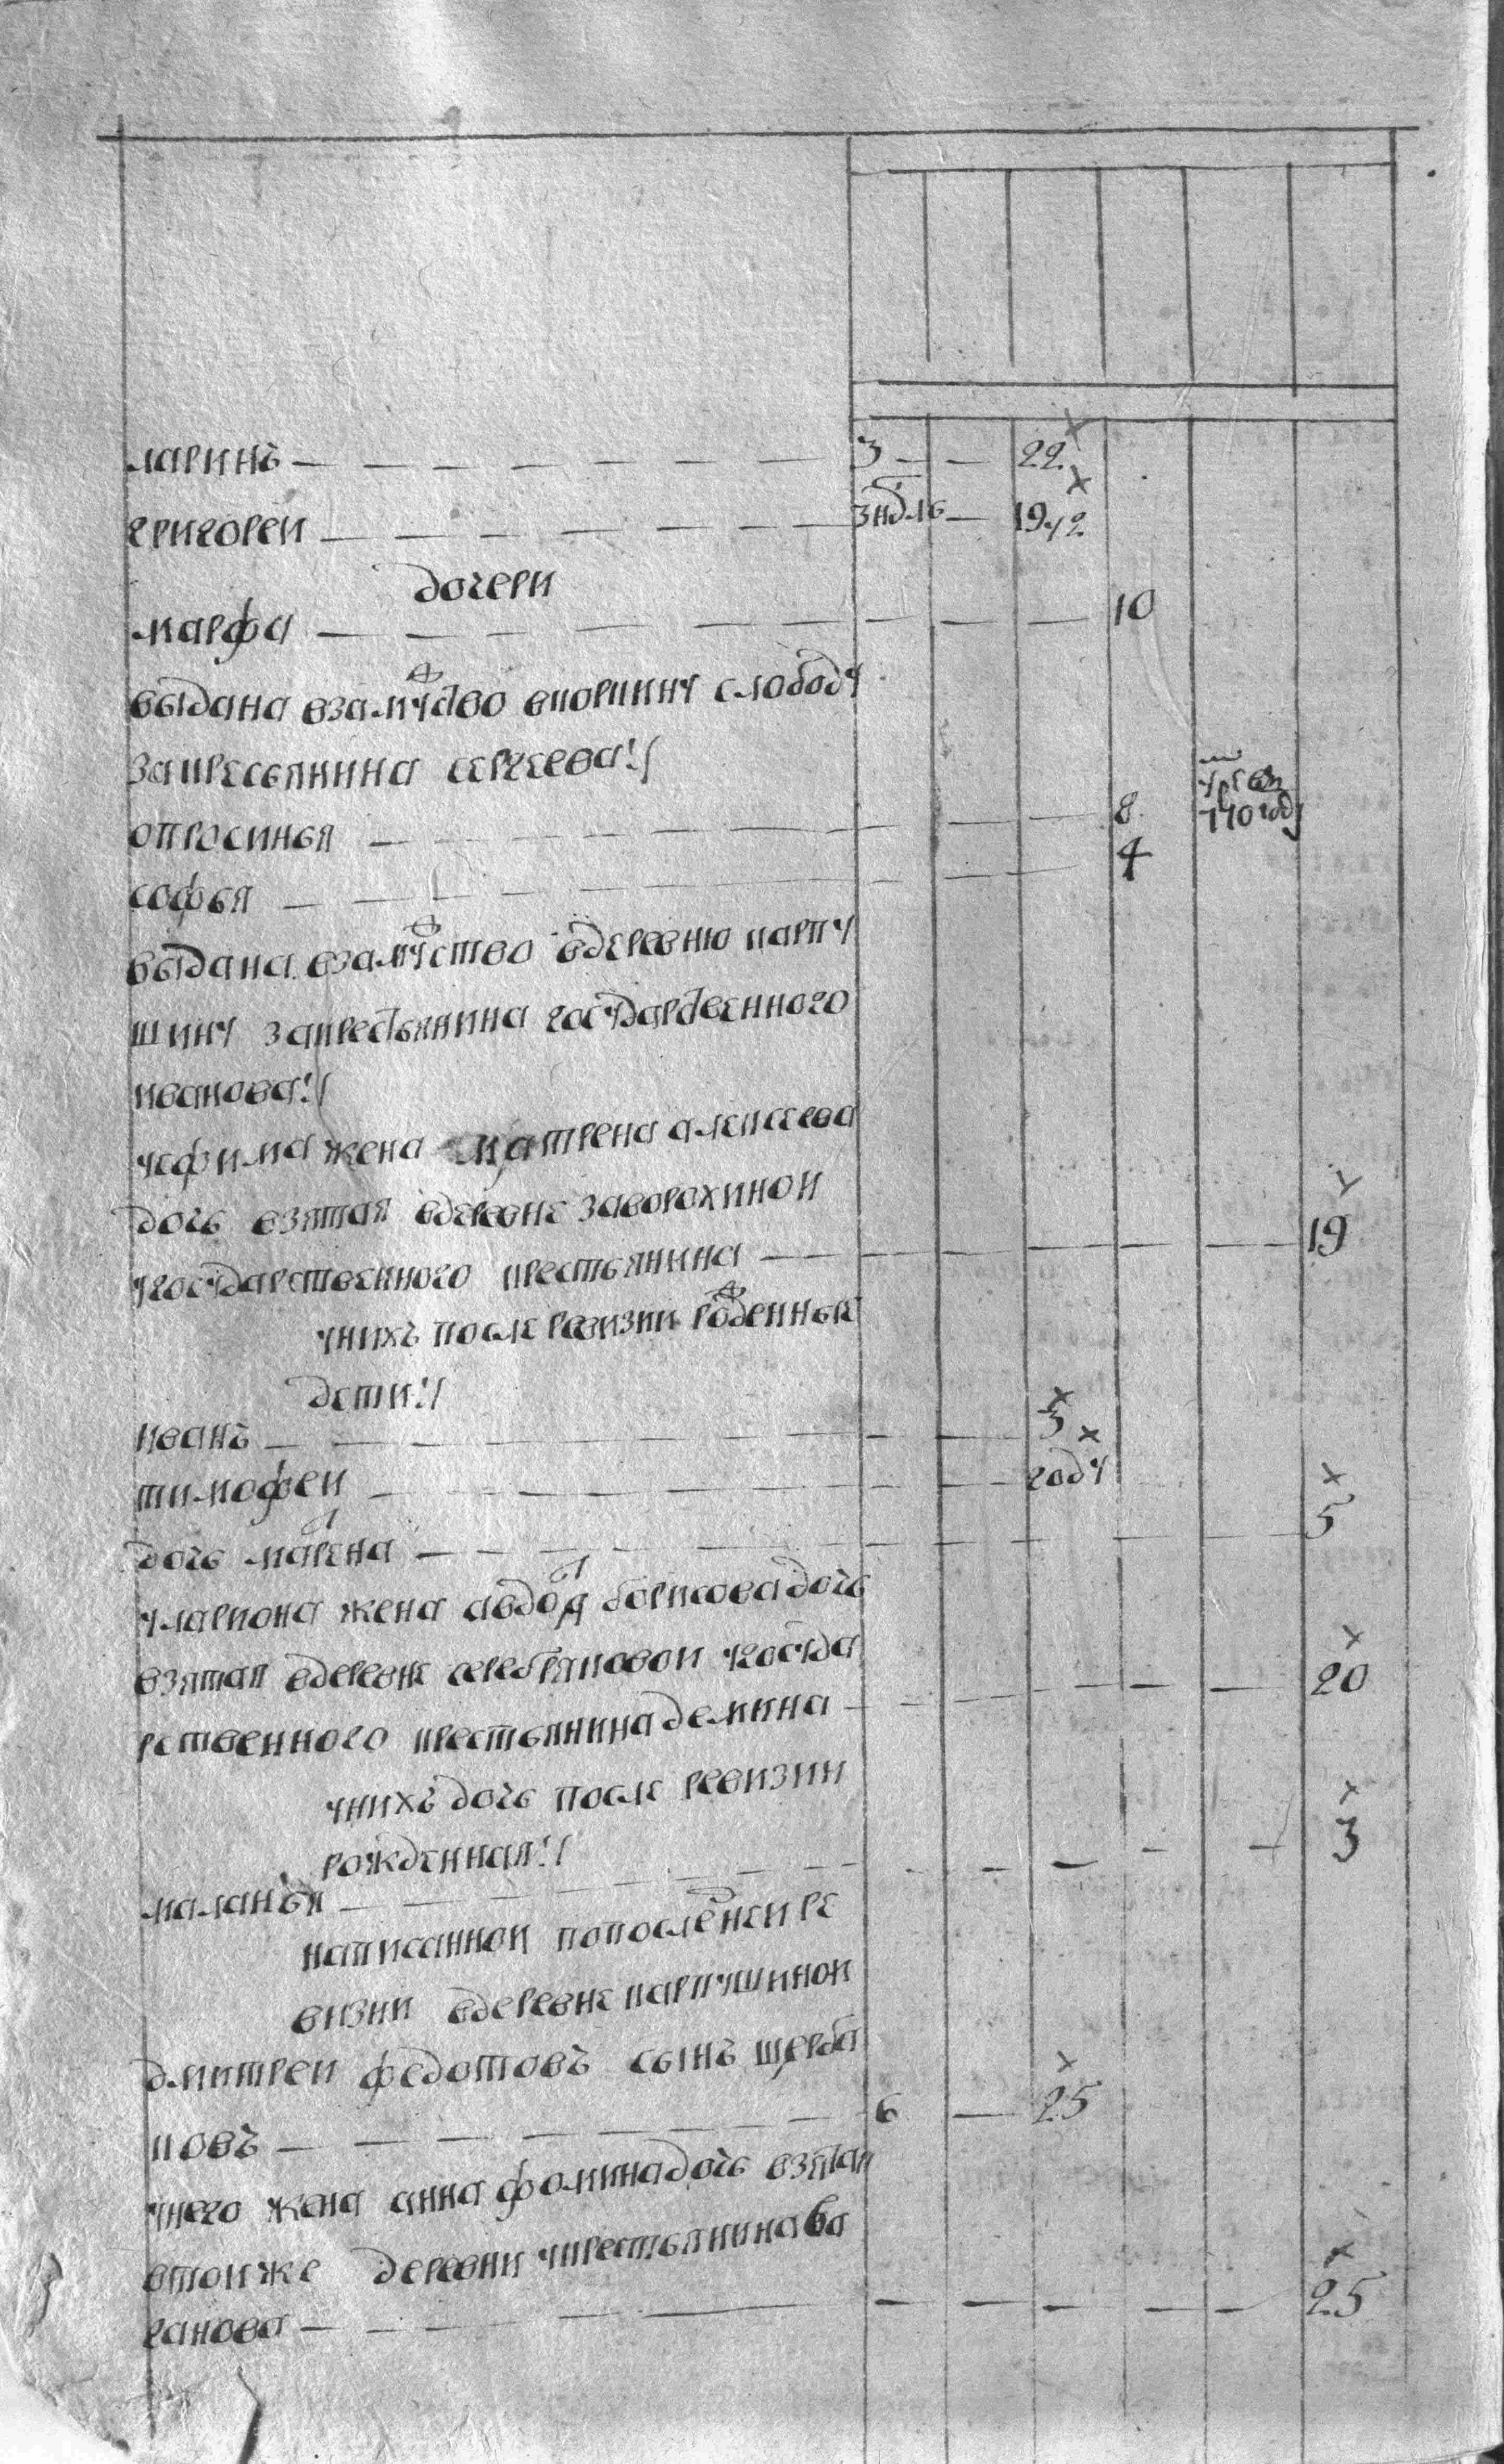 ларинъ — 3 — 22
григореи — 3 ндлъ — 19
дочери
марфа — 10
выдана взамужство в коркину слободу
за кресьянина сергеева
опросинья — 8
софья — 4
выдана взамужство вдеревню карпу
шину закрестьянина государственного
иванова
уефима жена матрена алексеева
дочь взятая вдеревне заворохинои
угосударственного крестьянина — 19
унихъ после ревизии рожденные
дети
иванъ — 3
тимофеи — году
дочь марена — 5
улариона жена авдотя борисова дочь
взятая вдеревне серебряковои угосуда
рственного крестьянина демина — 20
унихъ дочь после ревизии
рожденная
маланья — 3
написаннои попоследнеи ре
визии вдеревне карпушинои
дмитреи федотовъ сынъ щерба
ковъ — 6 — 25
унего жена анна фомина дочь взятая
втоиже деревни укрестьянина ва
ганова — 25